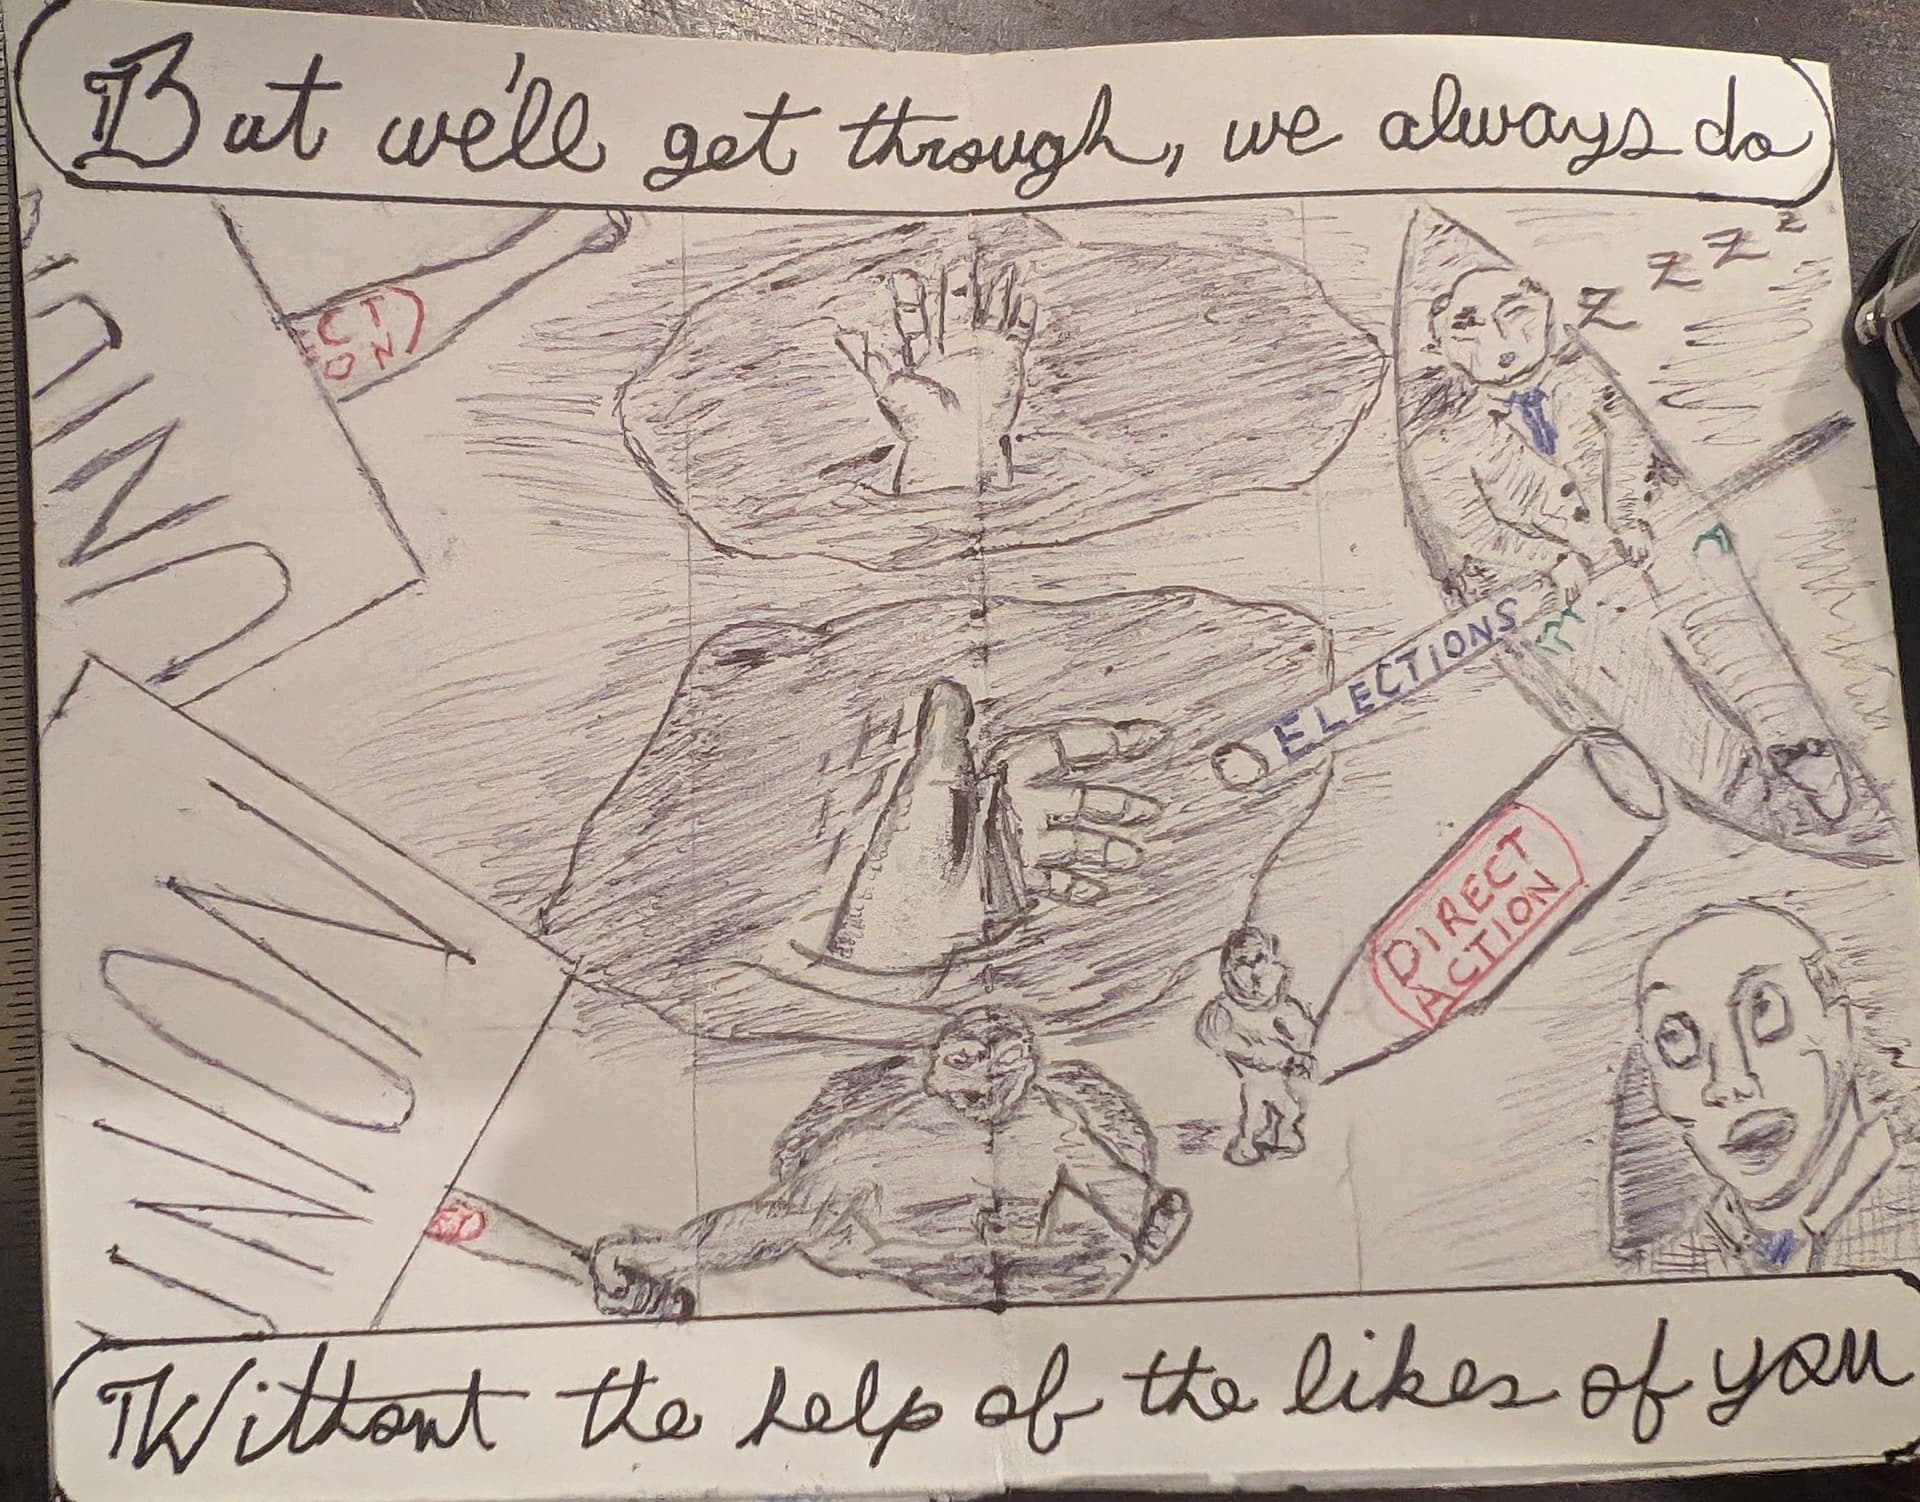 But we'll get through, we always do
CT
ON
z z z z
ELECTIONS
DIRECT
ACTION
UNION
Without the help of the likes of you